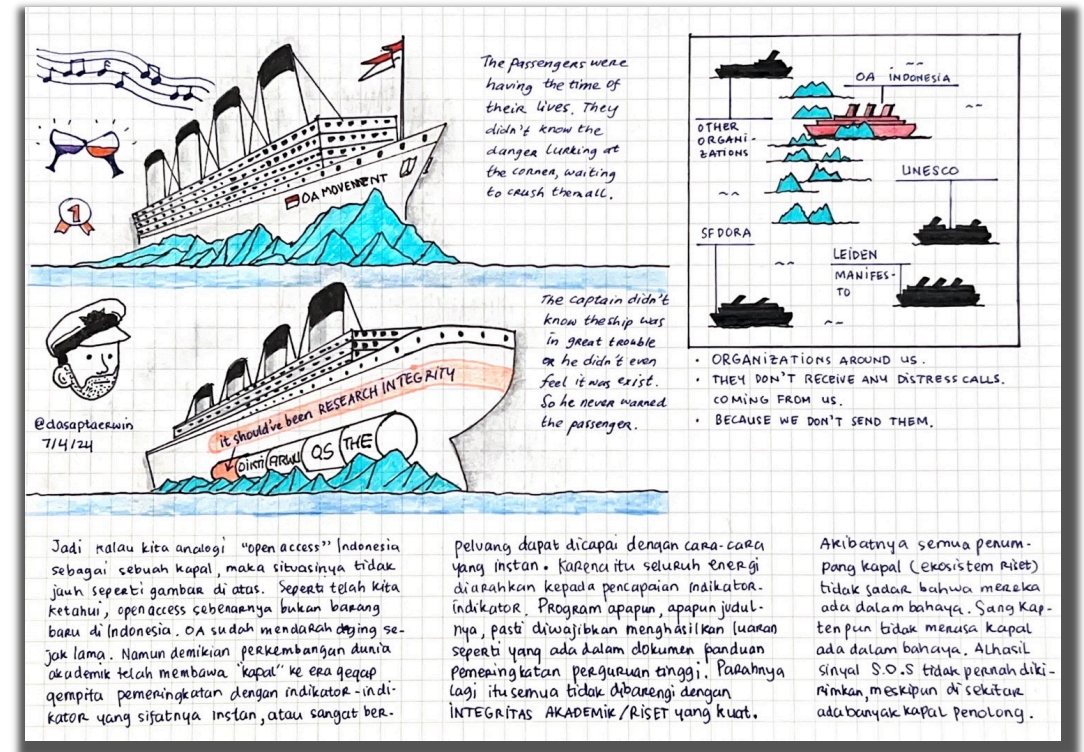 The passengers were
having the time of
their lives. They
didn't know the
danger lurking at
the corner, waiting
to crush them all.
OA MOVEMENT
1
OA INDONESIA
OTHER
ORGANI-
ZATIONS
UNESCO
SFDORA
LEIDEN
MANIFES-
TO
The captain didn't
know the ship was
in great trouble
or he didn't even
feel it was exist.
So he never warned
the passenger.
it should've been RESEARCH INTEGRITY
DIKTI ARWU QS THE
@dasaptaerwin
7/4/24
• ORGANIZATIONS AROUND US.
• THEY DON'T RECEIVE ANY DISTRESS CALLS.
COMING FROM US.
• BECAUSE WE DON'T SEND THEM.
Jadi kalau kita analogi "open access" Indonesia
sebagai sebuah kapal, maka situasinya tidak
jauh seperti gambar di atas. Seperti telah kita
ketahui, open access sebenarnya bukan barang
baru di Indonesia. OA sudah mendarah daging se-
jak lama. Namun demikian perkembangan dunia
akademik telah membawa "kapal" ke era gegap
gempita pemeringkatan dengan indikator-indi-
kator yang sifatnya instan, atau sangat ber-
peluang dapat dicapai dengan cara-cara
yang instan. Karena itu seluruh energi
diarahkan kepada pencapaian indikator-
indikator. Program apapun, apapun judul-
nya, pasti diwajibkan menghasilkan luaran
seperti yang ada dalam dokumen panduan
pemeringkatan perguruan tinggi. Parahnya
lagi itu semua tidak dibarengi dengan
INTEGRITAS AKADEMIK/RISET yang kuat.
Akibatnya semua penum-
pang kapal (ekosistem riset)
tidak sadar bahwa mereka
ada dalam bahaya. Sang kap-
ten pun tidak merasa kapal
ada dalam bahaya. Alhasil
sinyal S.O.S tidak pernah diki-
rimkan, meskipun di sekitar
ada banyak kapal penolong.